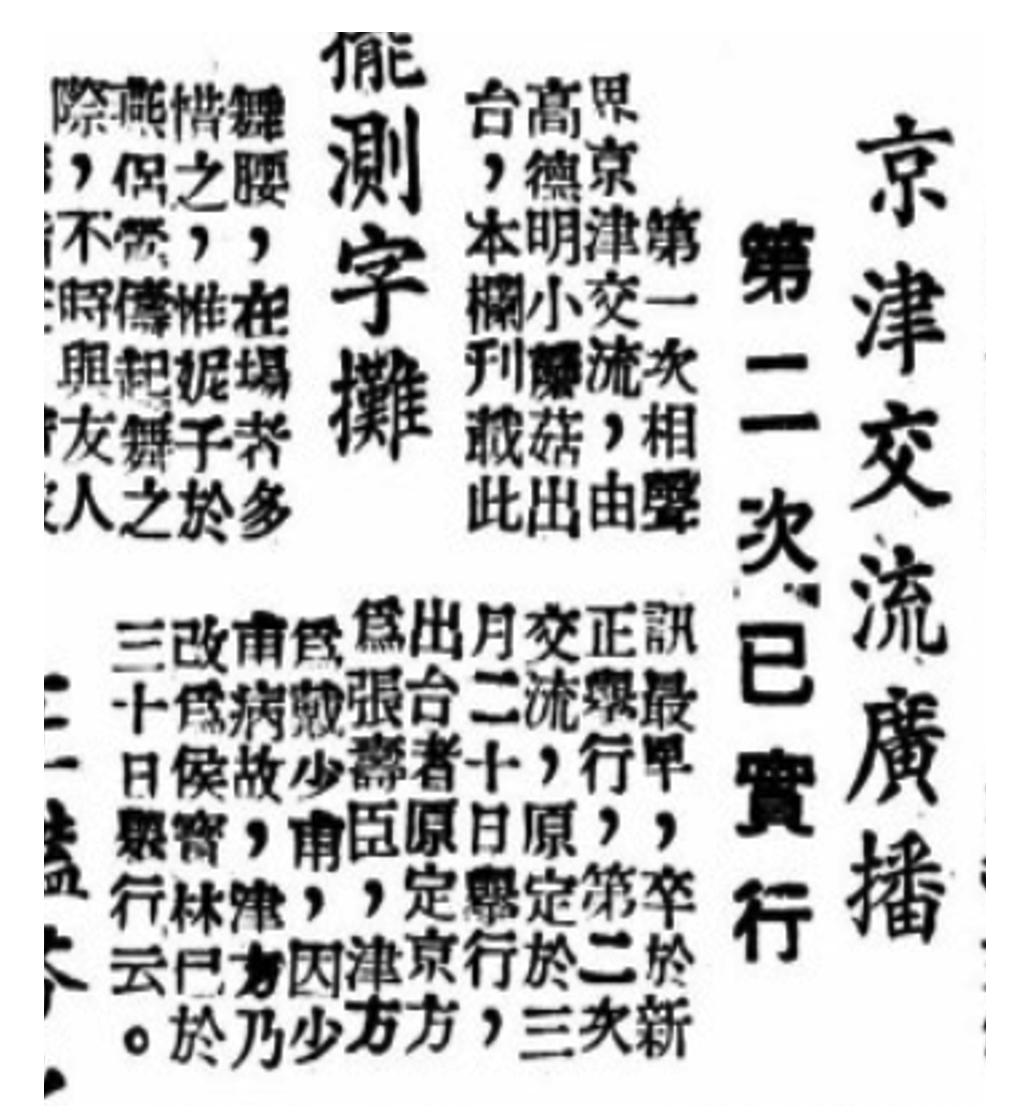 京津交流廣播
第二次已實行
第一次相聲
界京津交流，由
高德明小蘑菇出
台，本欄刊載此
訊最早，卒於新
正舉行，第二次
交流，原定於三
月二十日舉行，
出台者原定京方
爲張壽臣，津方
爲戴少甫，因少
甫病故，津方乃
改爲侯寶林已於
三十日舉行云。
擺測字攤
舞腰，在場者多
惜之，惟妮子於
燕侶鶯儔起舞之
際，不時與友人